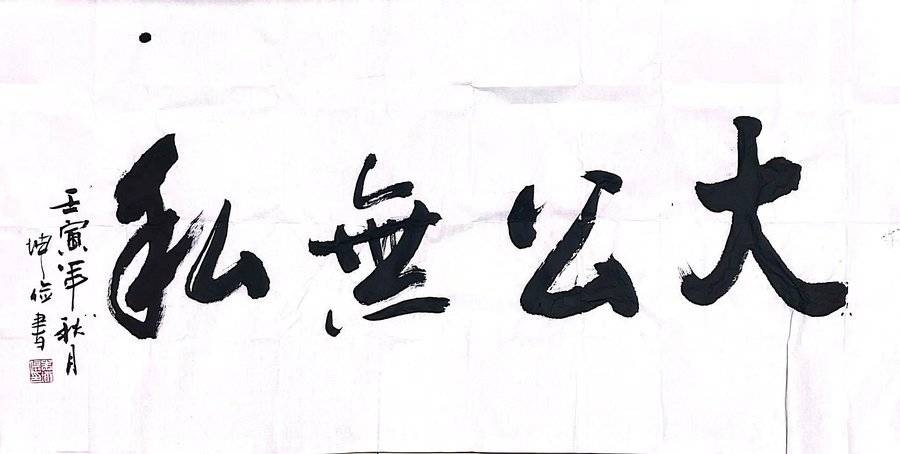 大公無私
壬寅年秋月
坤俭書